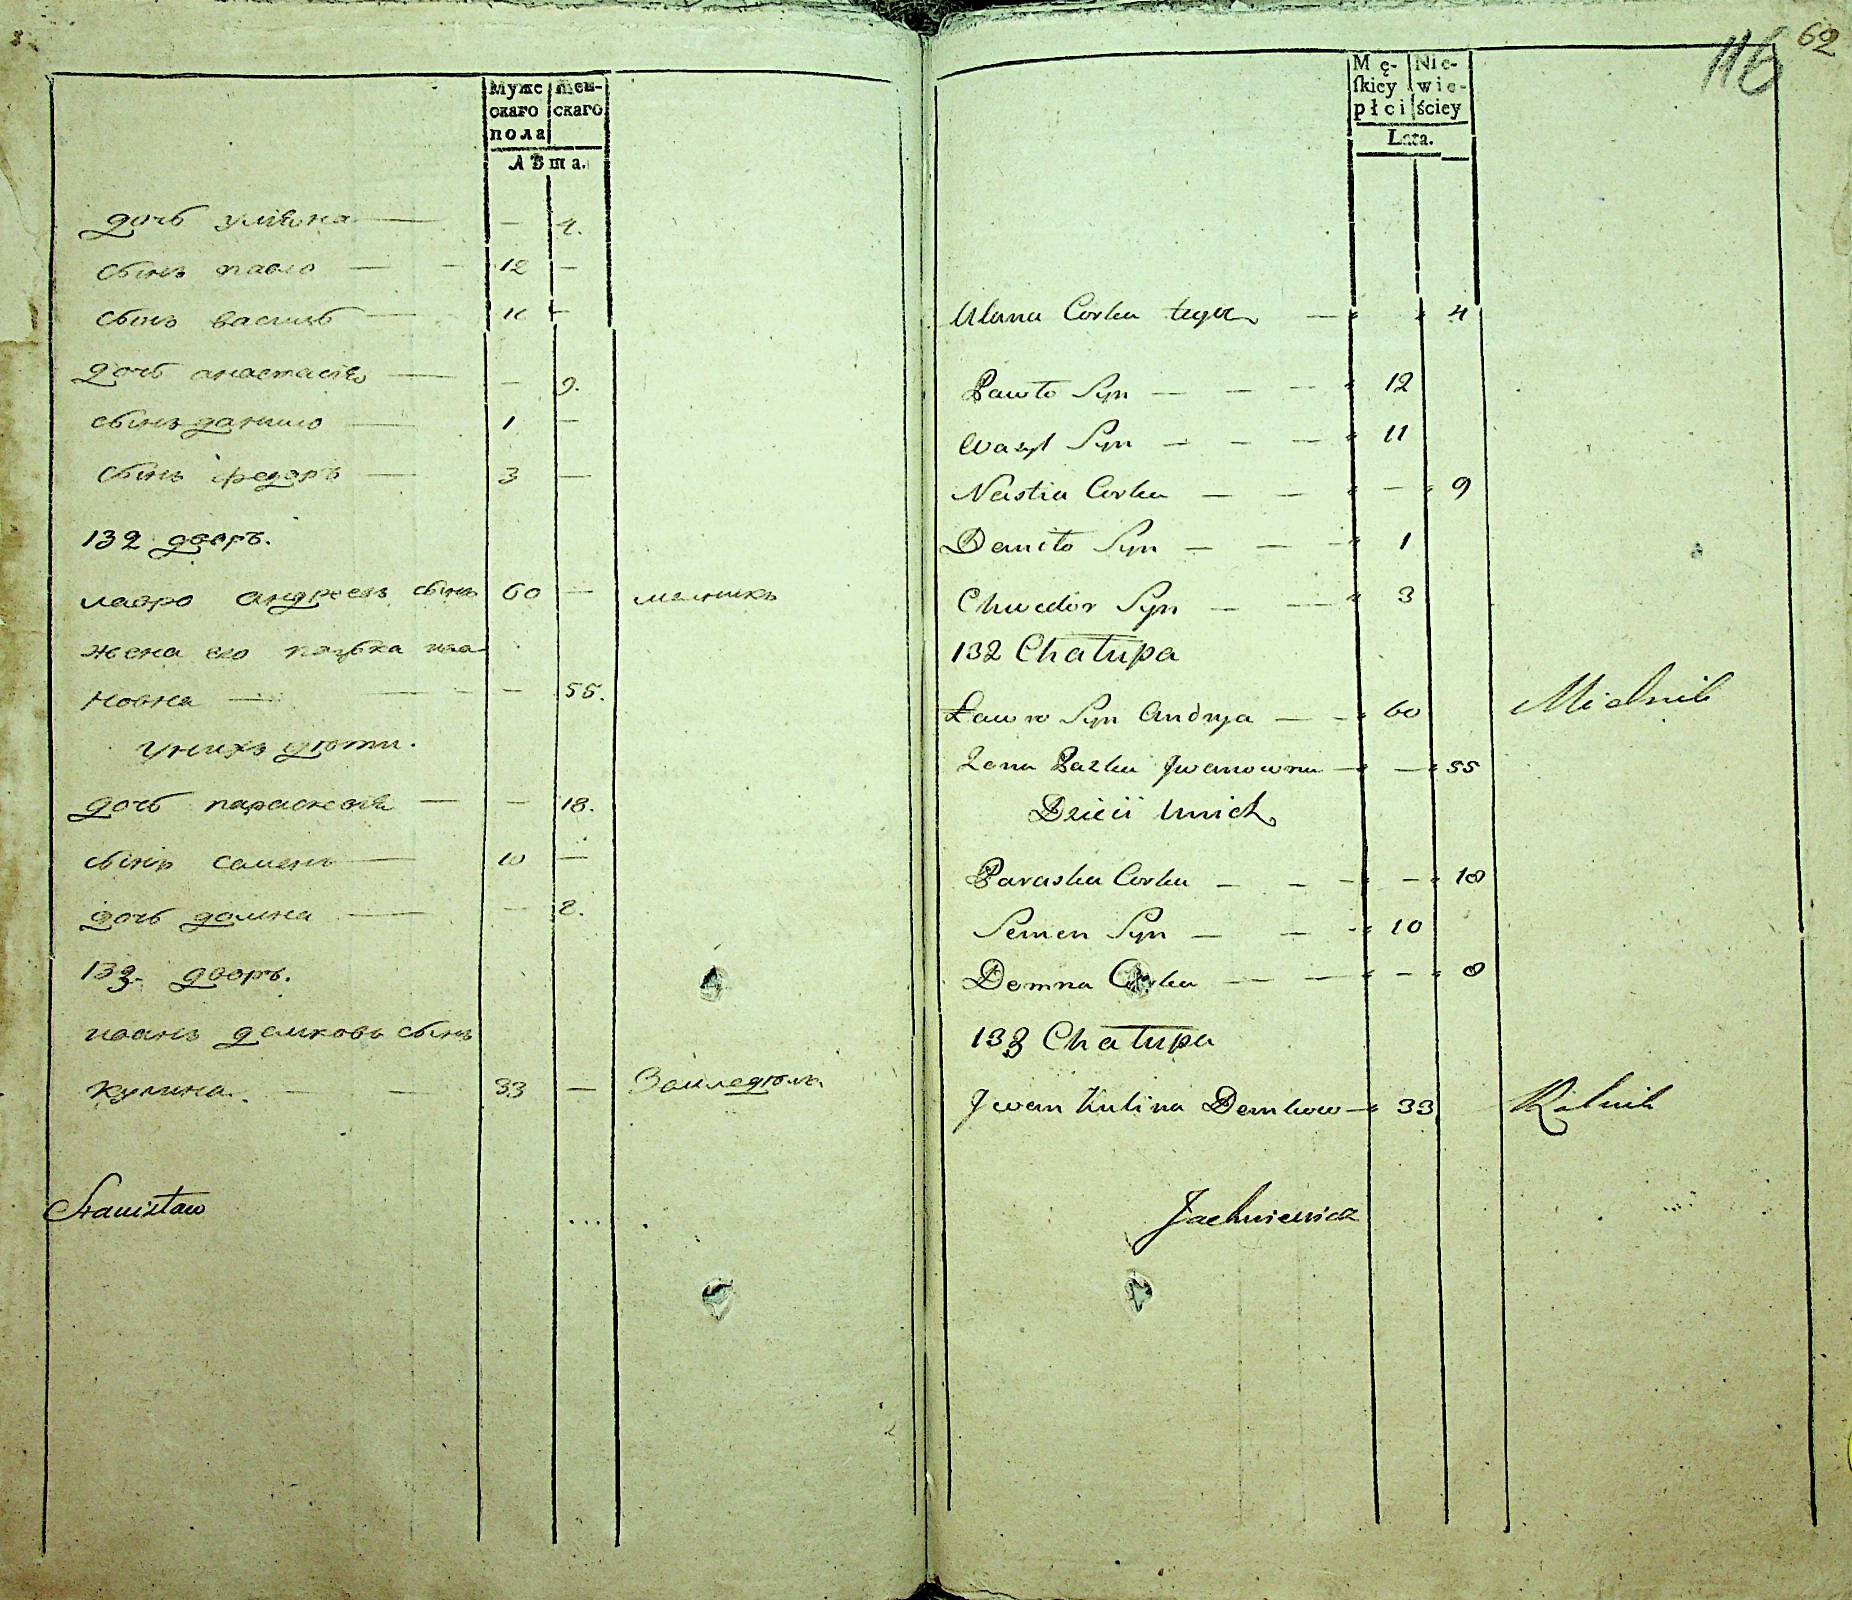 Муже Жен-
скаго скаго
пола
Лѣта.
дочь улiяна — — 4.
сынъ павло — — 12 —
сынъ василь — 11 —
дочь анастасiя — — 9.
сынъ данило — 1 —
сынъ федоръ — 3 —
132 дворъ.
лавро андреевъ сынъ 60 — мелникъ
жена его пазька ива
новна — — — 55.
у нихъ дѣти.
дочь параскевiя — — 18.
сынъ семенъ — 10 —
дочь домна — — 8.
133. дворъ.
иванъ демковъ сынъ
кулина. — — 33 —
Stanisław
116 62
Mę- Nie-
skiey wie-
płci ściey
Lata.
Ulana Corka tego — 4
Pawło Syn — — — 12
Wasyl Syn — — — 11
Nastia Corka — — — 9
Daniło Syn — — — 1
Chwedor Syn — — 3
132 Chałupa
Ławro Syn Andryia — — 60 Mielnik
Zona Pazka Jwanowna — — 55
Dzieci Unich
Paraska Corka — — — — 18
Semen Syn — — - 10
Domna Corka — — — — 8
133 Chałupa
Jwan Kulina Demkow — 33 Rolnik
Jachniewicz